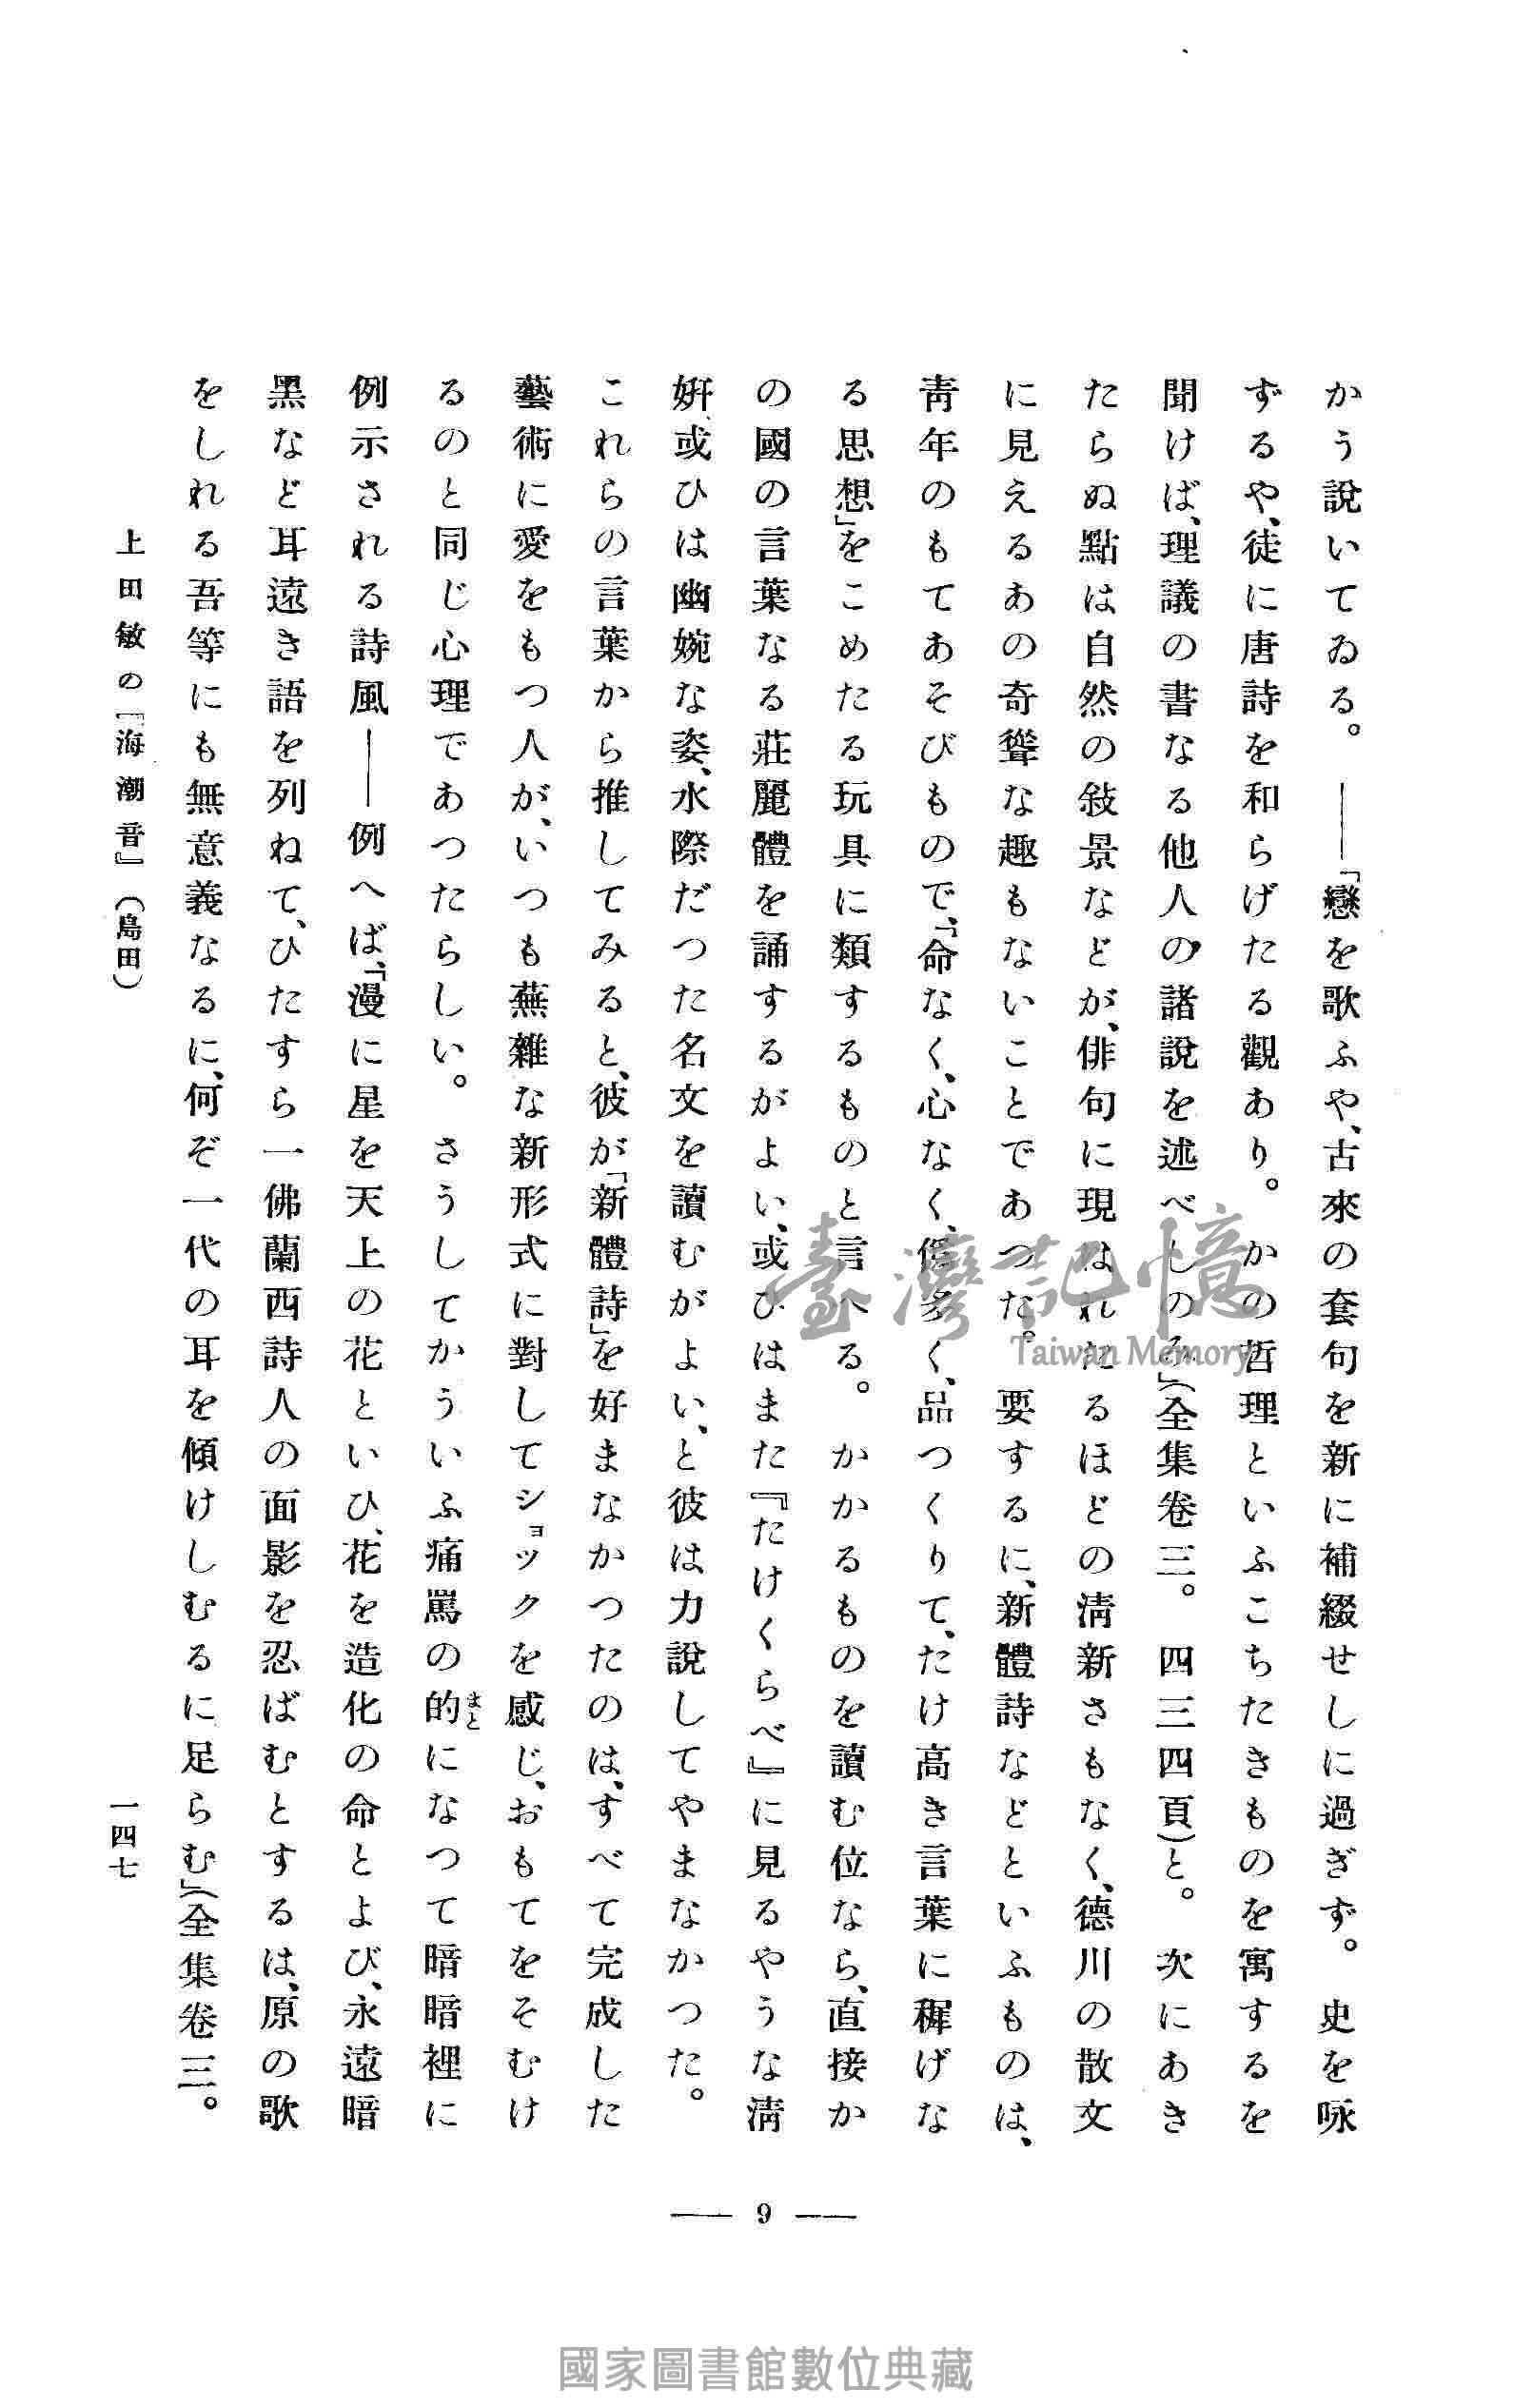 かう說いてゐる。　――「戀を歌ふや、古來の套句を新に補綴せしに過ぎず。　史を咏
ずるや、徒に唐詩を和らげたる觀あり。　かの哲理といふこちたきものを寓するを
聞けば、理議の書なる他人の諸說を述べしのみ」（全集卷三。　四三四頁）と。　次にあき
たらぬ點は自然の敍景などが、俳句に現はれたるほどの淸新さもなく、德川の散文
に見えるあの奇聳な趣もないことであつた。　要するに、新體詩などといふものは、
靑年のもてあそびもので、「命なく、心なく、僞多く、品つくりて、たけ高き言葉に穉げな
る思想」をこめたる玩具に類するものと言へる。　かかるものを讀む位なら、直接か
の國の言葉なる莊麗體を誦するがよい、或ひはまた『たけくらべ』に見るやうな淸
姸、或ひは幽婉な姿、水際だつた名文を讀むがよい、と彼は力說してやまなかつた。
これらの言葉から推してみると、彼が「新體詩」を好まなかつたのは、すべて完成した
藝術に愛をもつ人が、いつも蕪雜な新形式に對してショックを感じ、おもてをそむけ
るのと同じ心理であつたらしい。　さうしてかういふ痛罵の的になつて暗暗裡に
まと
例示される詩風――例へば、「漫に星を天上の花といひ、花を造化の命とよび、永遠暗
黑など耳遠き語を列ねて、ひたすら一佛蘭西詩人の面影を忍ばむとするは、原の歌
をしれる吾等にも無意義なるに、何ぞ一代の耳を傾けしむるに足らむ」（全集卷三。
上田敏の『海潮音』（島田）
一四七
― 9 ―
臺灣記憶
Taiwan Memory
國家圖書館數位典藏